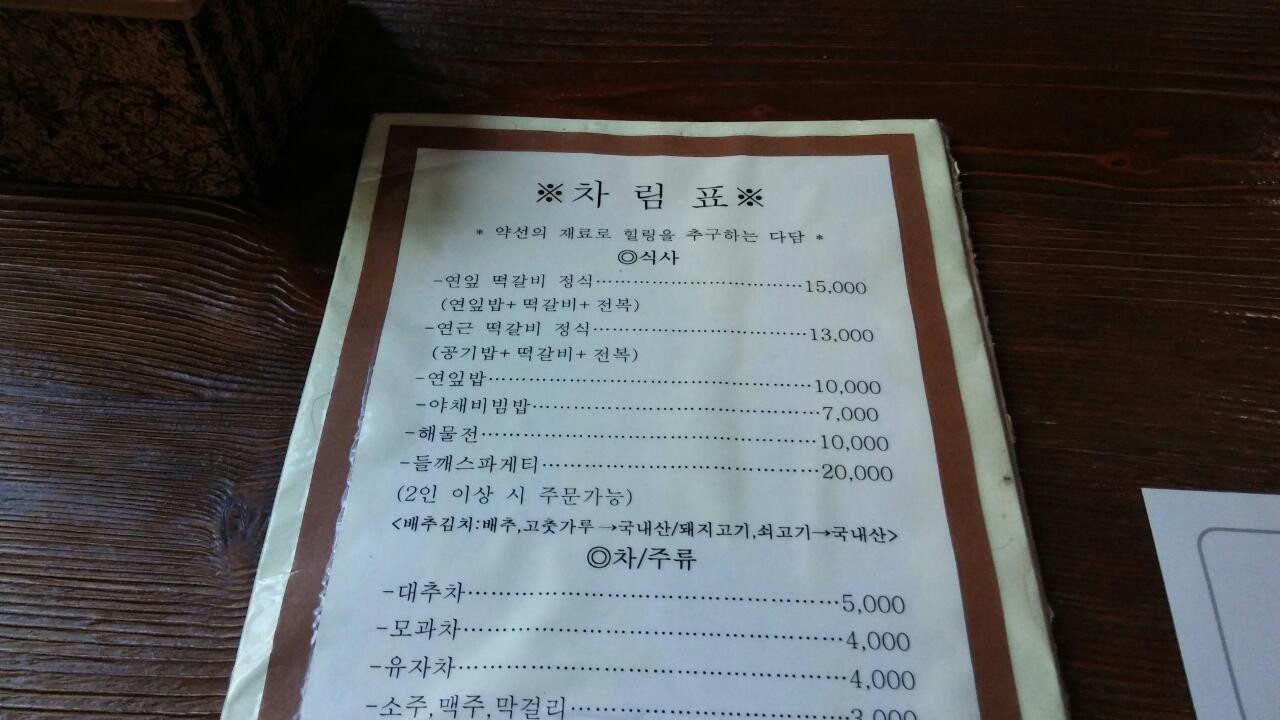 ※차 림 표※
* 약선의 재료로 힐링을 추구하는 다담 *
◎식사
-연잎 떡갈비 정식……………………………15,000
(연잎밥+ 떡갈비+ 전복)
-연근 떡갈비 정식……………………………13,000
(공기밥+ 떡갈비+ 전복)
-연잎밥……………………………………………10,000
-야채비빔밥………………………………………7,000
-해물전……………………………………………10,000
-들깨스파게티……………………………………20,000
(2인 이상 시 주문가능)
<배추김치:배추,고춧가루→국내산/돼지고기,쇠고기→국내산>
◎차/주류
-대추차……………………………………………5,000
-모과차……………………………………………4,000
-유자차……………………………………………4,000
-소주,맥주,막걸리………………………………3,000